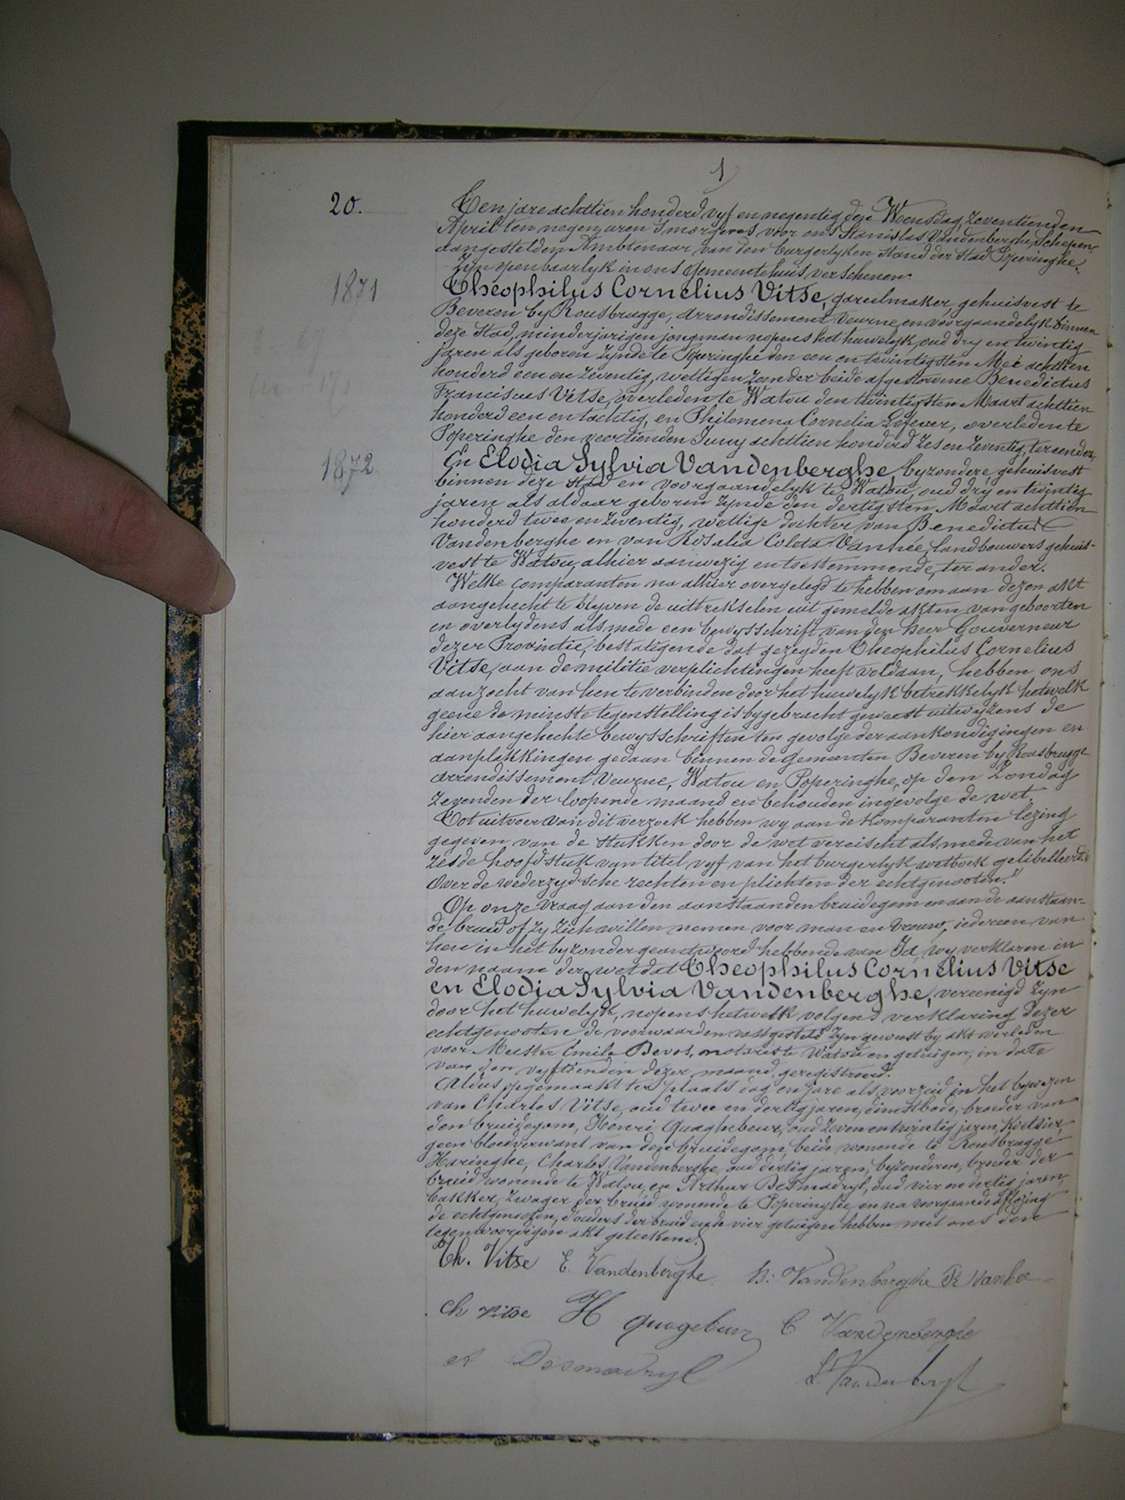 1
20.
Ten jare achttien honderd vyf en negentig deze Woensdag zeventienden
April ten negen uren 's morgens voor ons Stanislas Vandenberghe, Schepen,
aangestelden Ambtenaar van den burgerlyken stand der stad Poperinghe,
zyn openbaarlyk in ons gemeentehuis, verschenen:
1871
Theophilus Cornelius Vitse, gareelmaker, gehuisvest te
Beveren by Rousbrugge, Arrondissement Veurne, en voorgaandelyk binnen
deze stad, minderjarigen jongman nopens het huwelyk, oud dry en twintig
jaren als geboren zynde te Poperinghe den een en twintigsten Meï achttien
honderd een en zeventig, wettigen zoon der beide afgestorvene Benedictus
Franciscus Vitse, overleden te Watou den twintigsten Maart achttien
honderd een en tachtig, en Philomena Cornelia Lefever, overleden te
Poperinghe den veertienden Juny achttien honderd zes en zeventig, ter eender,
1872
En Elodia Sylvia Vandenberghe, byzondere, gehuisvest
binnen deze stad en voorgaandelyk te Watou, oud dry en twintig
jaren als aldaar geboren zynde den dertigsten Maart achttien
honderd twee en zeventig, wettige dochter van Benedictus
Vandenberghe en van Rosalia Coleta Vanhée, landbouwers gehuis-
vest te Watou, alhier aanwezig en toestemmende, ter ander.
Welke comparanten na alhier overgelegd te hebben om aan dezen akt
aangehecht te blyven de uittrekselen uit gemelde akten van geboorten
en overlydens alsmede een bewysschrift van den heer Gouverneur
dezer Provintie, bestatigende dat gezegden Theophilus Cornelius
Vitse, aan de militie verplichtingen heeft voldaan, hebben ons
aanzocht van hen te verbinden door het huwelyk betrekkelyk hetwelk
geene de minste tegenstelling is bygebracht geweest uitwyzens de
hier aangehechte bewysschriften ten gevolge der aankondigingen en
aanplakkingen gedaan binnen de Gemeenten Beveren by Rousbrugge
Arrondissement Veurne, Watou en Poperinghe, op den Zondag
Zevenden der loopende maand en behouden ingevolge de wet.
Tot uitvoer van dit verzoek hebben wy aan de komparanten lezing
gegeven van de stukken door de wet vereischt alsmede van het
zesde hoofdstuk van titel vyf van het burgerlyk wetboek gelibelleerd:
"Over de wederzydsche rechten en plichten der echtgenooten."
Op onze vraag aan den aanstaanden bruidegom en aan de aanstaan-
de bruid of zy zich willen nemen voor man en vrouw, iedereen van
hen in het byzonder geantwoord hebbende van Ja, wy verklaren in
den naam der wet dat Theophilus Cornelius Vitse
en Elodia Sylvia Vandenberghe, vereenigd zyn
door het huwelyk, nopens hetwelk volgens verklaring dezer
echtgenooten de voorwaarden vastgesteld zyn geweest by akt verleden
voor Meester Emile Bevos, notaris te Watou en getuigen, in date
van den vyftienden dezer maand, geregistreerd.
Aldus opgemaakt ter plaats dag en jare als voorzeid in het bywezen
van Charles Vitse, oud twee en dertig jaren, dienstbode, broeder van
den bruidegom, Henri Quaghebeur, oud zeven en twintig jaren, Koetsier,
geen bloedverwant van den bruidegom, beide wonende te Rousbrugge
Haringhe, Charles Vandenberghe, oud dertig jaren, byzonderen, broeder der
bruid wonende te Watou, en Arthur Desmadryl, oud vier en dertig jaren,
bakker, zwager der bruid wonende te Poperinghe en na voorgaande lezing
de echtgenooten, d'ouders der bruid en de vier getuigen hebben met ons dezen
tegenwoordigen akt geteekend.
Th. Vitse E. Vandenberghe B: Vandenberghe R Vanhee
Ch vitse H Quagebeur C Vandenberghe
Desmadryl S. Vandenberghe